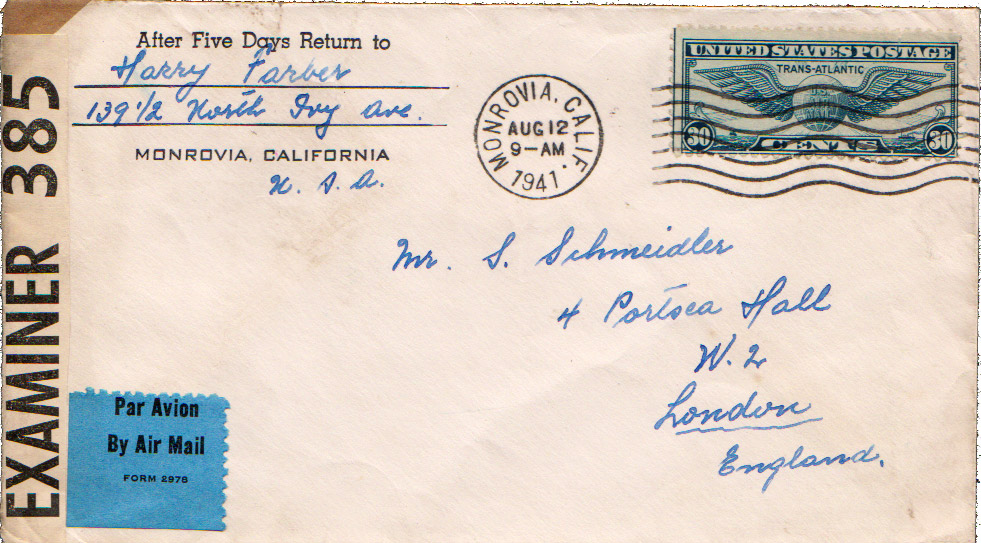 After Five Days Return to
Harry Farber
139 1/2 North Ivy Ave.
MONROVIA, CALIFORNIA
U. S. A.
MONROVIA, CALIF.
AUG 12
9-AM
1941
UNITED STATES POSTAGE
TRANS-ATLANTIC
U.S.
30 CENTS 30
Mr. S. Schmeidler
4 Portsea Hall
W. 2
London
England.
EXAMINER 385
Par Avion
By Air Mail
FORM 2978